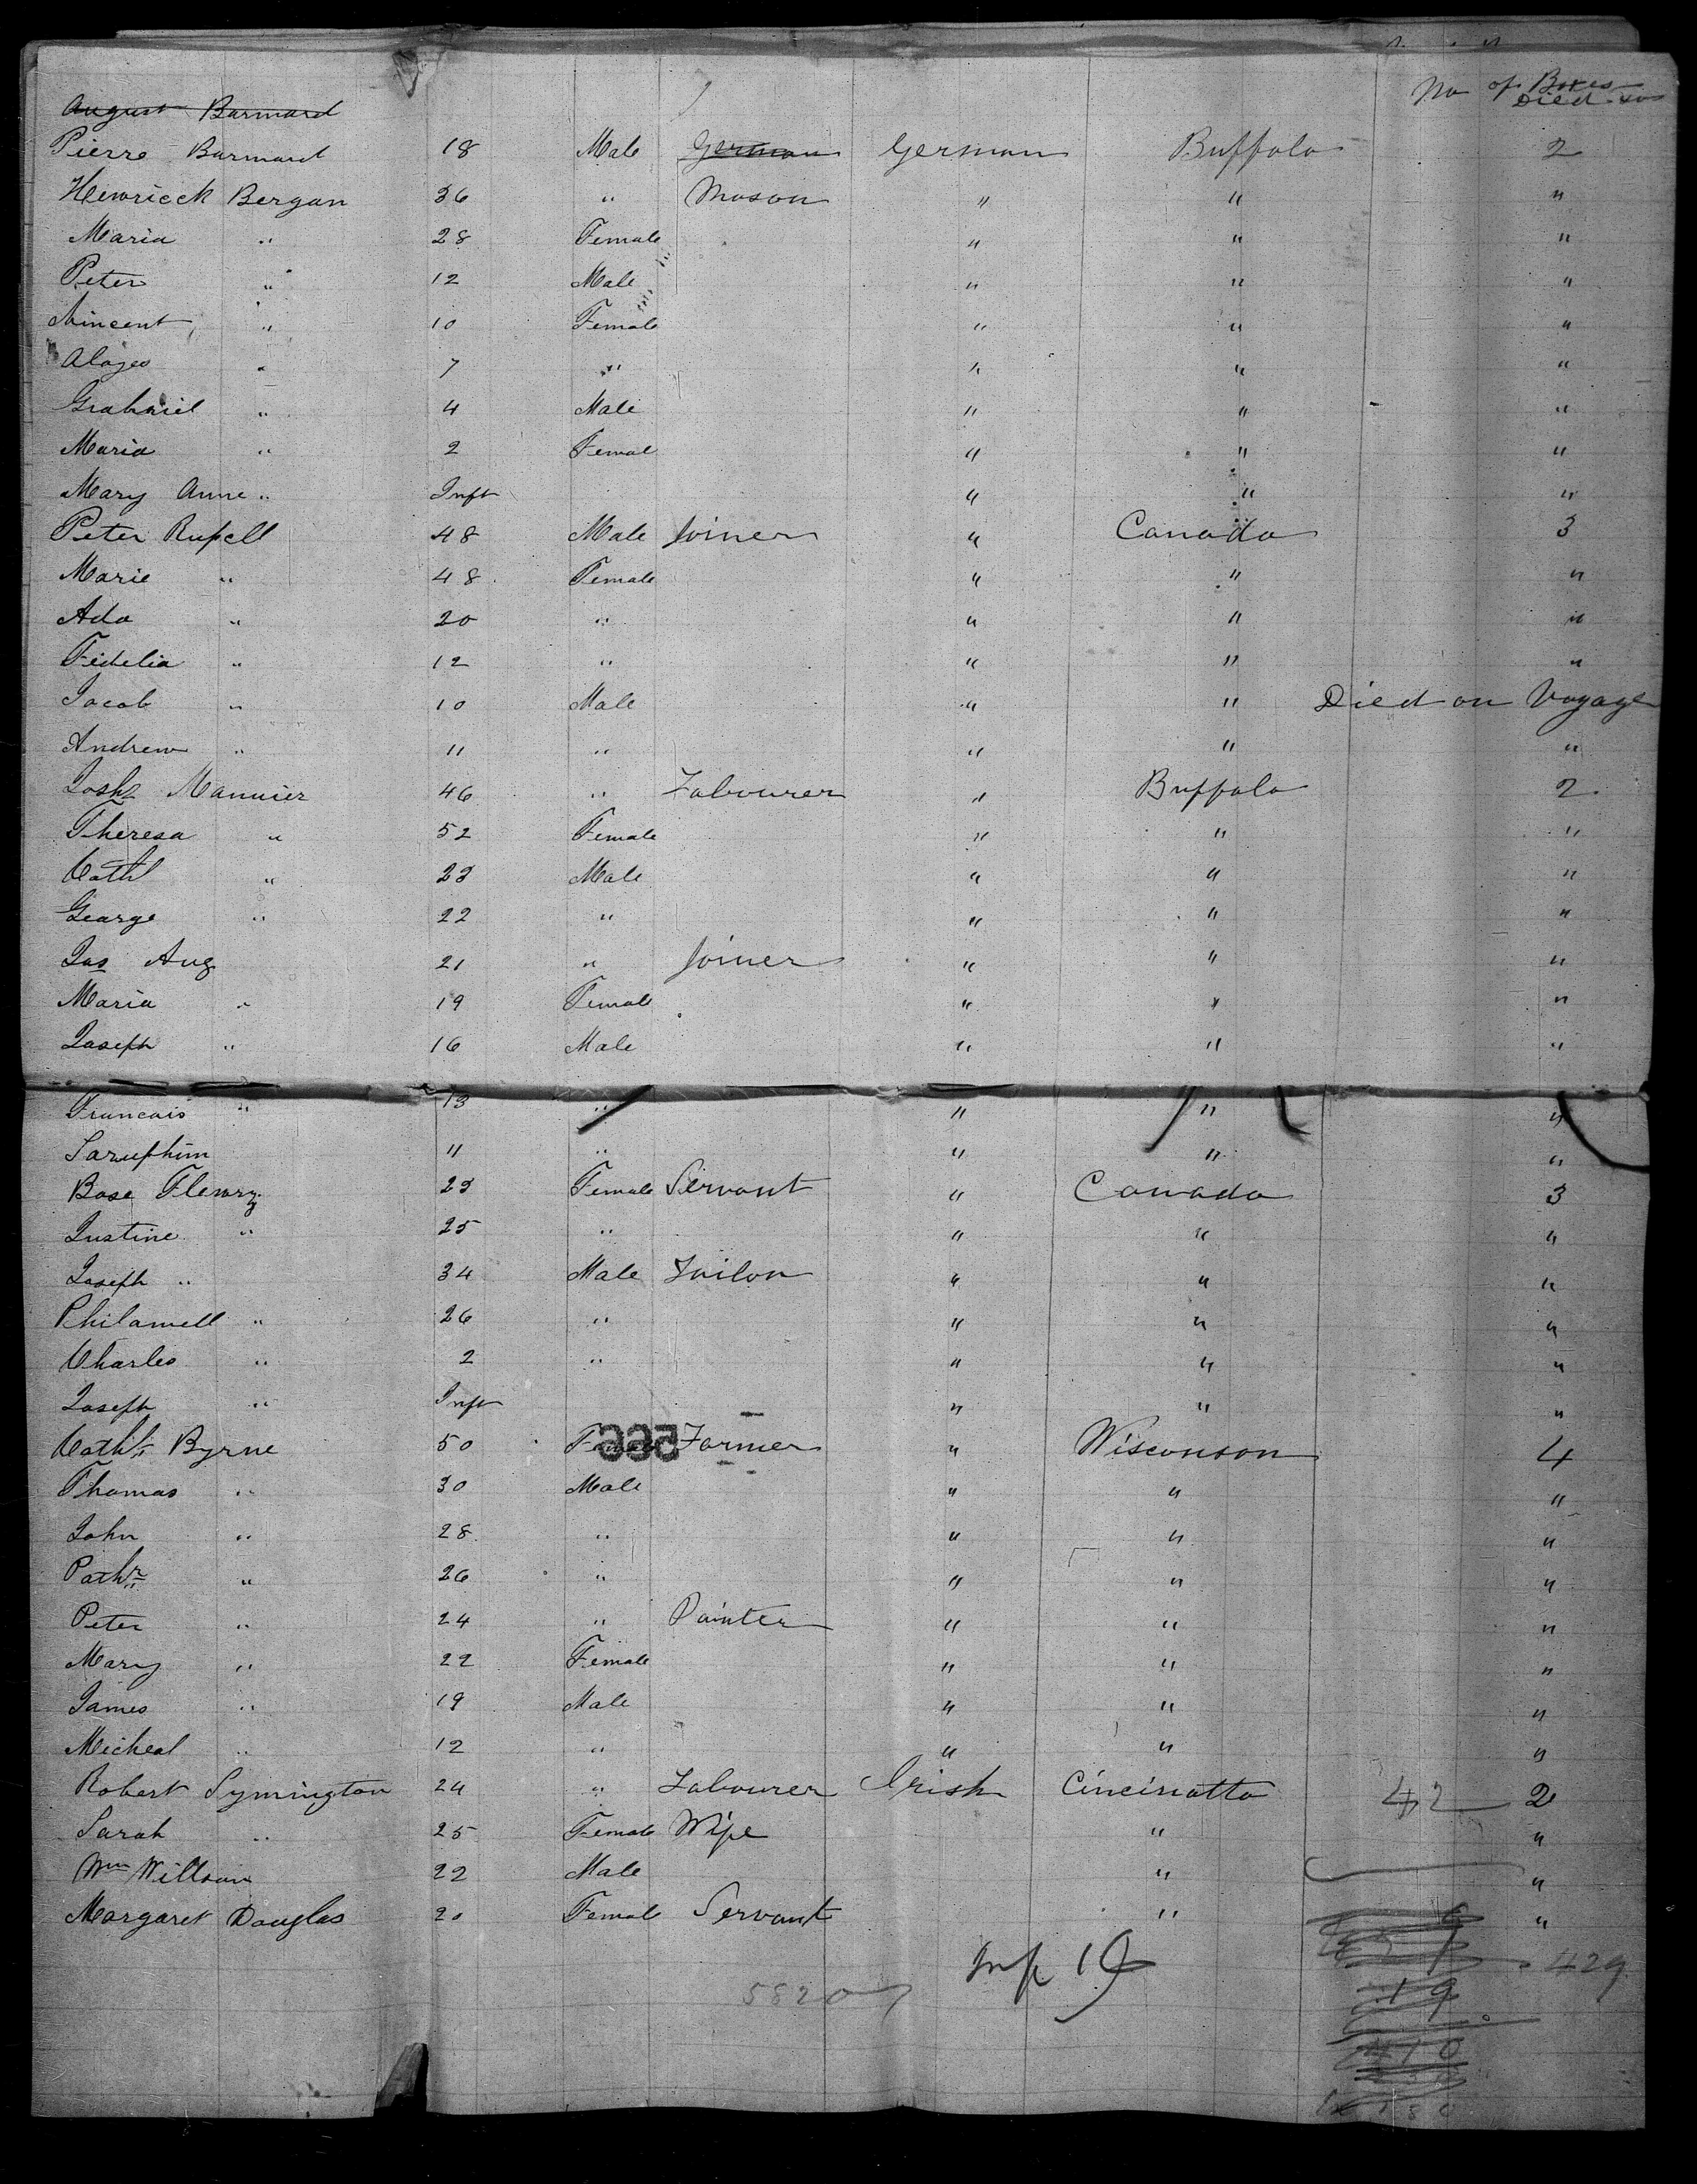 No of Boxes
Died on
August Barmard
Pierre Barmard 18 Male German German Buffalo 2
Henricck Bergan 36 " Mason " " "
Maria " 28 Female " " "
Peter " 12 Male " " "
Vincent " 10 Female " " "
Aloyes " 7 " " " "
Grabriel " 4 Male " " "
Maria " 2 Femal " " "
Mary Anne " Inft " " "
Peter Rupell 48 Male Joiner " Canada 3
Marie " 48 Female " " "
Ada " 20 " " " "
Fidelia " 12 " " " "
Jacob " 10 Male " " Died on Voyage
Andrew " 11 " " " "
Josh Mannier 46 " Labourer " Buffalo 2
Theresa " 52 Female " " "
Cath " 23 Male " " "
George " 22 " " " "
Jas Aug 21 " Joiner " " "
Maria " 19 Female " " "
Joseph " 16 Male " " "
Francais " 13 " " " "
Saruphim 11 " " " "
Rose Flewry 23 Female Servant " Canada 3
Justine " 25 " " " "
Joseph " 34 Male Tailor " " "
Philamell " 26 " " " "
Charles " 2 " " " "
Joseph " Inft " " "
Cath Byrne 50 Female Farmer " Wisconson 4
566
Thomas " 30 Male " " "
John " 28 " " " "
Pathk " 26 " " " "
Peter " 24 " Painter " " "
Mary " 22 Female " " "
James " 19 Male " " "
Micheal " 12 " " " "
Robert Symington 24 " Labourer Irish Cincinatta 42 2
Sarah " 25 Female Wife " "
Wm Willson 22 Male " "
Margaret Douglas 20 Female Servant " "
Inf 19
429
5820
19